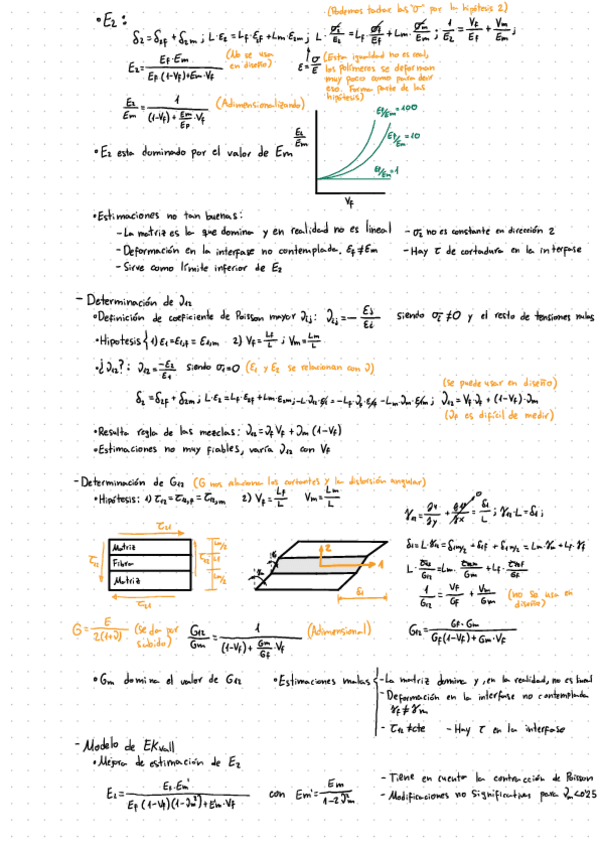 (Podemos tachar las σ por la hipótesis 2)
• E₂:
δ₂=δ₂f+δ₂m ; L·E₂=Lf·E₂f+Lm·E₂m ; L·σ₂/E₂=Lf·σ₂/Ef+Lm·σm/Em ; 1/E₂=Vf/Ef+Vm/Em ;
E₂=Ef·Em/(Ef(1-Vf)+Em·Vf) (No se usa en diseño)
E=σ/E (Esta igualdad no es real, los polímeros se deforman muy poco como para decir eso. Forma parte de las hipótesis)
E₂/Em=1/((1-Vf)+Em/Ef·Vf) (Adimensionalizando)
• E₂ esta dominado por el valor de Em
E₂/Em
Ef/Em=100
Ef/Em=10
Ef/Em=1
Vf
• Estimaciones no tan buenas:
- La matriz es la que domina y en realidad no es lineal - σ₂ no es constante en dirección 2
- Deformación en la interfase no contemplada. Ef≠Em - Hay τ de cortadura en la interfase
- Sirve como límite inferior de E₂
- Determinación de ν₁₂
• Definición de coeficiente de Poisson mayor νij: νij=-Ej/Ei siendo σi≠0 y el resto de tensiones nulas
• Hipotesis { 1) E₁=E₁,f=E₁,m 2) Vf=Lf/L ; Vm=Lm/L
• ¿ν₁₂?: ν₁₂=-E₂/E₁ siendo σ₁=0 (E₁ y E₂ se relacionan con ν)
(Se puede usar en diseño)
δ₂=δ₂f+δ₂m ; L·E₂=Lf·E₂f+Lm·E₂m ; -L·ν₁₂·E₁=-Lf·νf·E₁f-Lm·νm·E₁m ; ν₁₂=Vf·νf+(1-Vf)·νm
(νf es difícil de medir)
• Resulta regla de las mezclas: ν₁₂=νf Vf+νm(1-Vf)
• Estimaciones no muy fiables, varía ν₁₂ con Vf
- Determinación de G₁₂ (G nos relaciona los cortantes y la distorsión angular)
• Hipótesis: 1) τ₁₂=τ₁₂,f=τ₁₂,m 2) Vf=Lf/L Vm=Lm/L
L; γ₁₂·L=δ₁ ;
τ₂₁
τ₁₂
Matriz
Fibra
Matriz
τ₁₂
Lm/2
Lf
Lm/2
τ₂₁
2
1
δ₁
L·τ₁₂/G₁₂=Lm·τ₁₂m/Gm+Lf·τ₁₂f/Gf
1/G₁₂=Vf/Gf+Vm/Gm (no se usa en diseño)
G=E/2(1+ν) (Se da por sabido)
G₁₂/Gm=1/((1-Vf)+Gm/Gf·Vf) (Adimensional)
G₁₂=Gf·Gm/(Gf(1-Vf)+Gm·Vf)
• Gm domina el valor de G₁₂
• Estimaciones malas { - La matriz domina y, en la realidad, no es lineal
- Deformación en la interfase no contemplada γf≠γm
- τ₁₂≠cte - Hay τ en la interfase
- Modelo de EKvall
• Mejora de estimación de E₂
E₂=Ef·Em'/(Ef(1-Vf)(1-νm²)+Em'·Vf) con Em'=Em/(1-2νm²)
- Tiene en cuenta la contracción de Poisson
- Modificaciones no significativas para νm<0'25